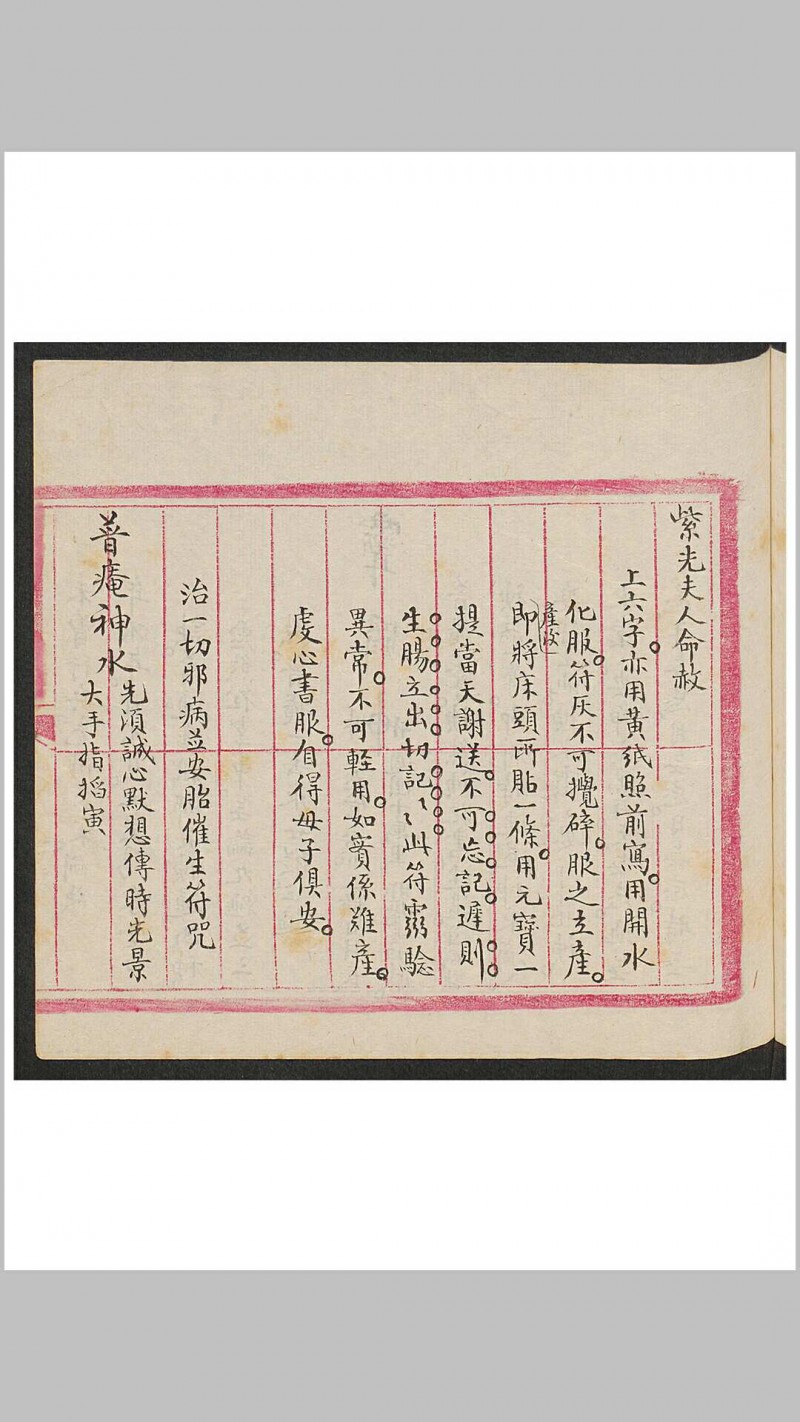 紫光夫人命赦
上六字。亦用黃紙照前寫。用開水
化服。符灰不可攪碎。服之立產。
產後
即將床頭所貼一條。用元寶一
提當天謝送。不可忘記。遲則
生腸立出切記〻此符靈驗
異常。不可輕用。如實係難產。
虔心書服。自得母子俱安。
治一切邪病並安胎催生符咒
普庵神水
先須誠心默想傳時光景
大手指搯寅